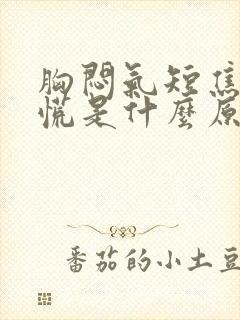 胸悶氣短焦
慌是什麼原
番茄的小土豆